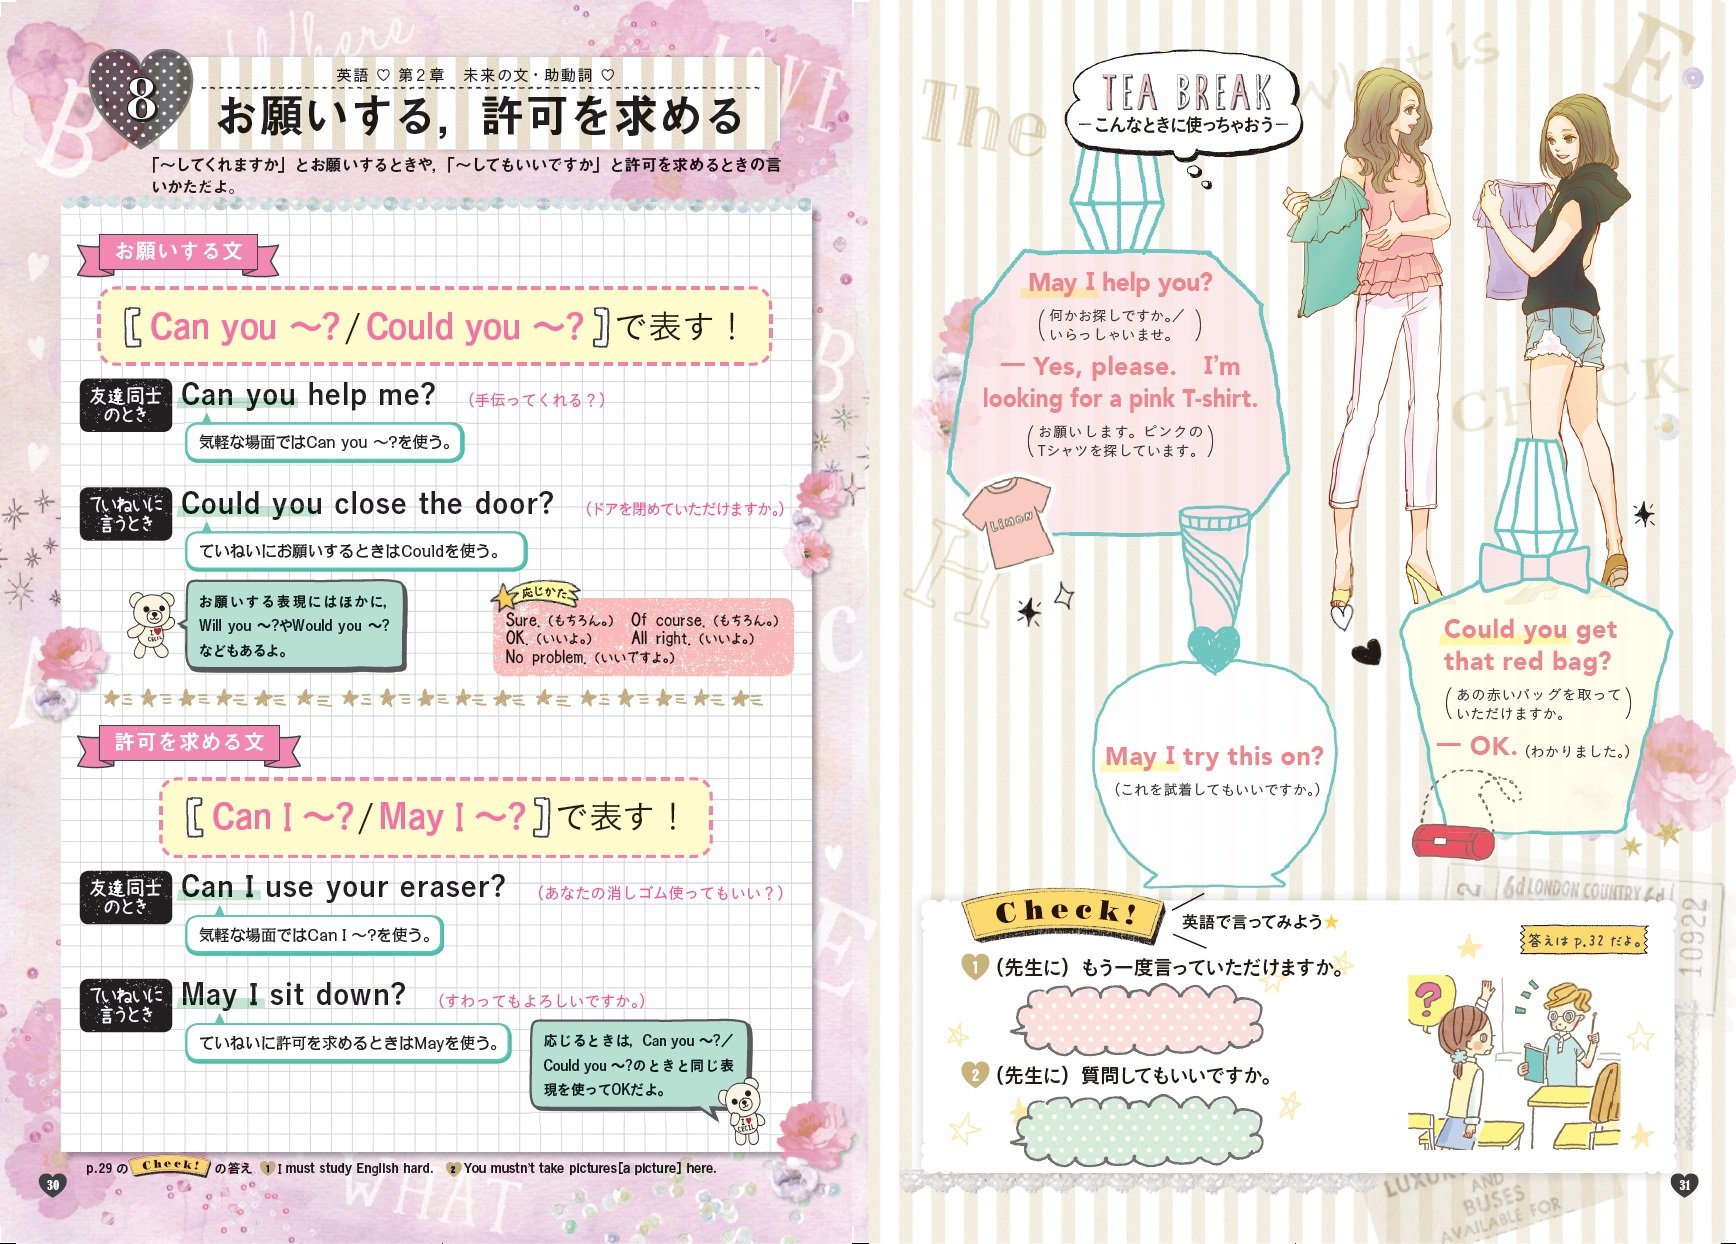 英語 ♡ 第2章　未来の文・助動詞 ♡
8
お願いする，許可を求める
「～してくれますか」とお願いするときや，「～してもいいですか」と許可を求めるときの言
いかただよ。
お願いする文
[ Can you ～? / Could you ～? ] で表す！
友達同士
のとき
Can you help me? （手伝ってくれる？）
気軽な場面ではCan you ～?を使う。
ていねいに
言うとき
Could you close the door? （ドアを閉めていただけますか。）
ていねいにお願いするときはCouldを使う。
お願いする表現にはほかに，
Will you ～?やWould you ～?
などもあるよ。
I ♥
CECIL
応じかた
Sure.（もちろん。） Of course.（もちろん。）
OK.（いいよ。） All right.（いいよ。）
No problem.（いいですよ。）
許可を求める文
[ Can I ～? / May I ～? ] で表す！
友達同士
のとき
Can I use your eraser? （あなたの消しゴム使ってもいい？）
気軽な場面ではCan I ～?を使う。
ていねいに
言うとき
May I sit down? （すわってもよろしいですか。）
ていねいに許可を求めるときはMayを使う。
応じるときは，Can you ～?／
Could you ～?のときと同じ表
現を使ってOKだよ。
I ♥
CECIL
p.29 の Check! の答え 1 I must study English hard. 2 You mustn't take pictures[a picture] here.
30
WHAT
TEA BREAK
－こんなときに使っちゃおう－
The
what is
E
CHECK
H
May I help you?
（何かお探しですか。／
いらっしゃいませ。）
— Yes, please. I'm
looking for a pink T-shirt.
（お願いします。ピンクの
Tシャツを探しています。）
LIMON
May I try this on?
（これを試着してもいいですか。）
Could you get
that red bag?
（あの赤いバッグを取って
いただけますか。）
— OK.（わかりました。）
6d LONDON COUNTRY 6d
10922
Check!
英語で言ってみよう★
答えは p.32 だよ。
1 （先生に）もう一度言っていただけますか。
?
2 （先生に）質問してもいいですか。
AND
BUSES
AVAILABLE FOR
31